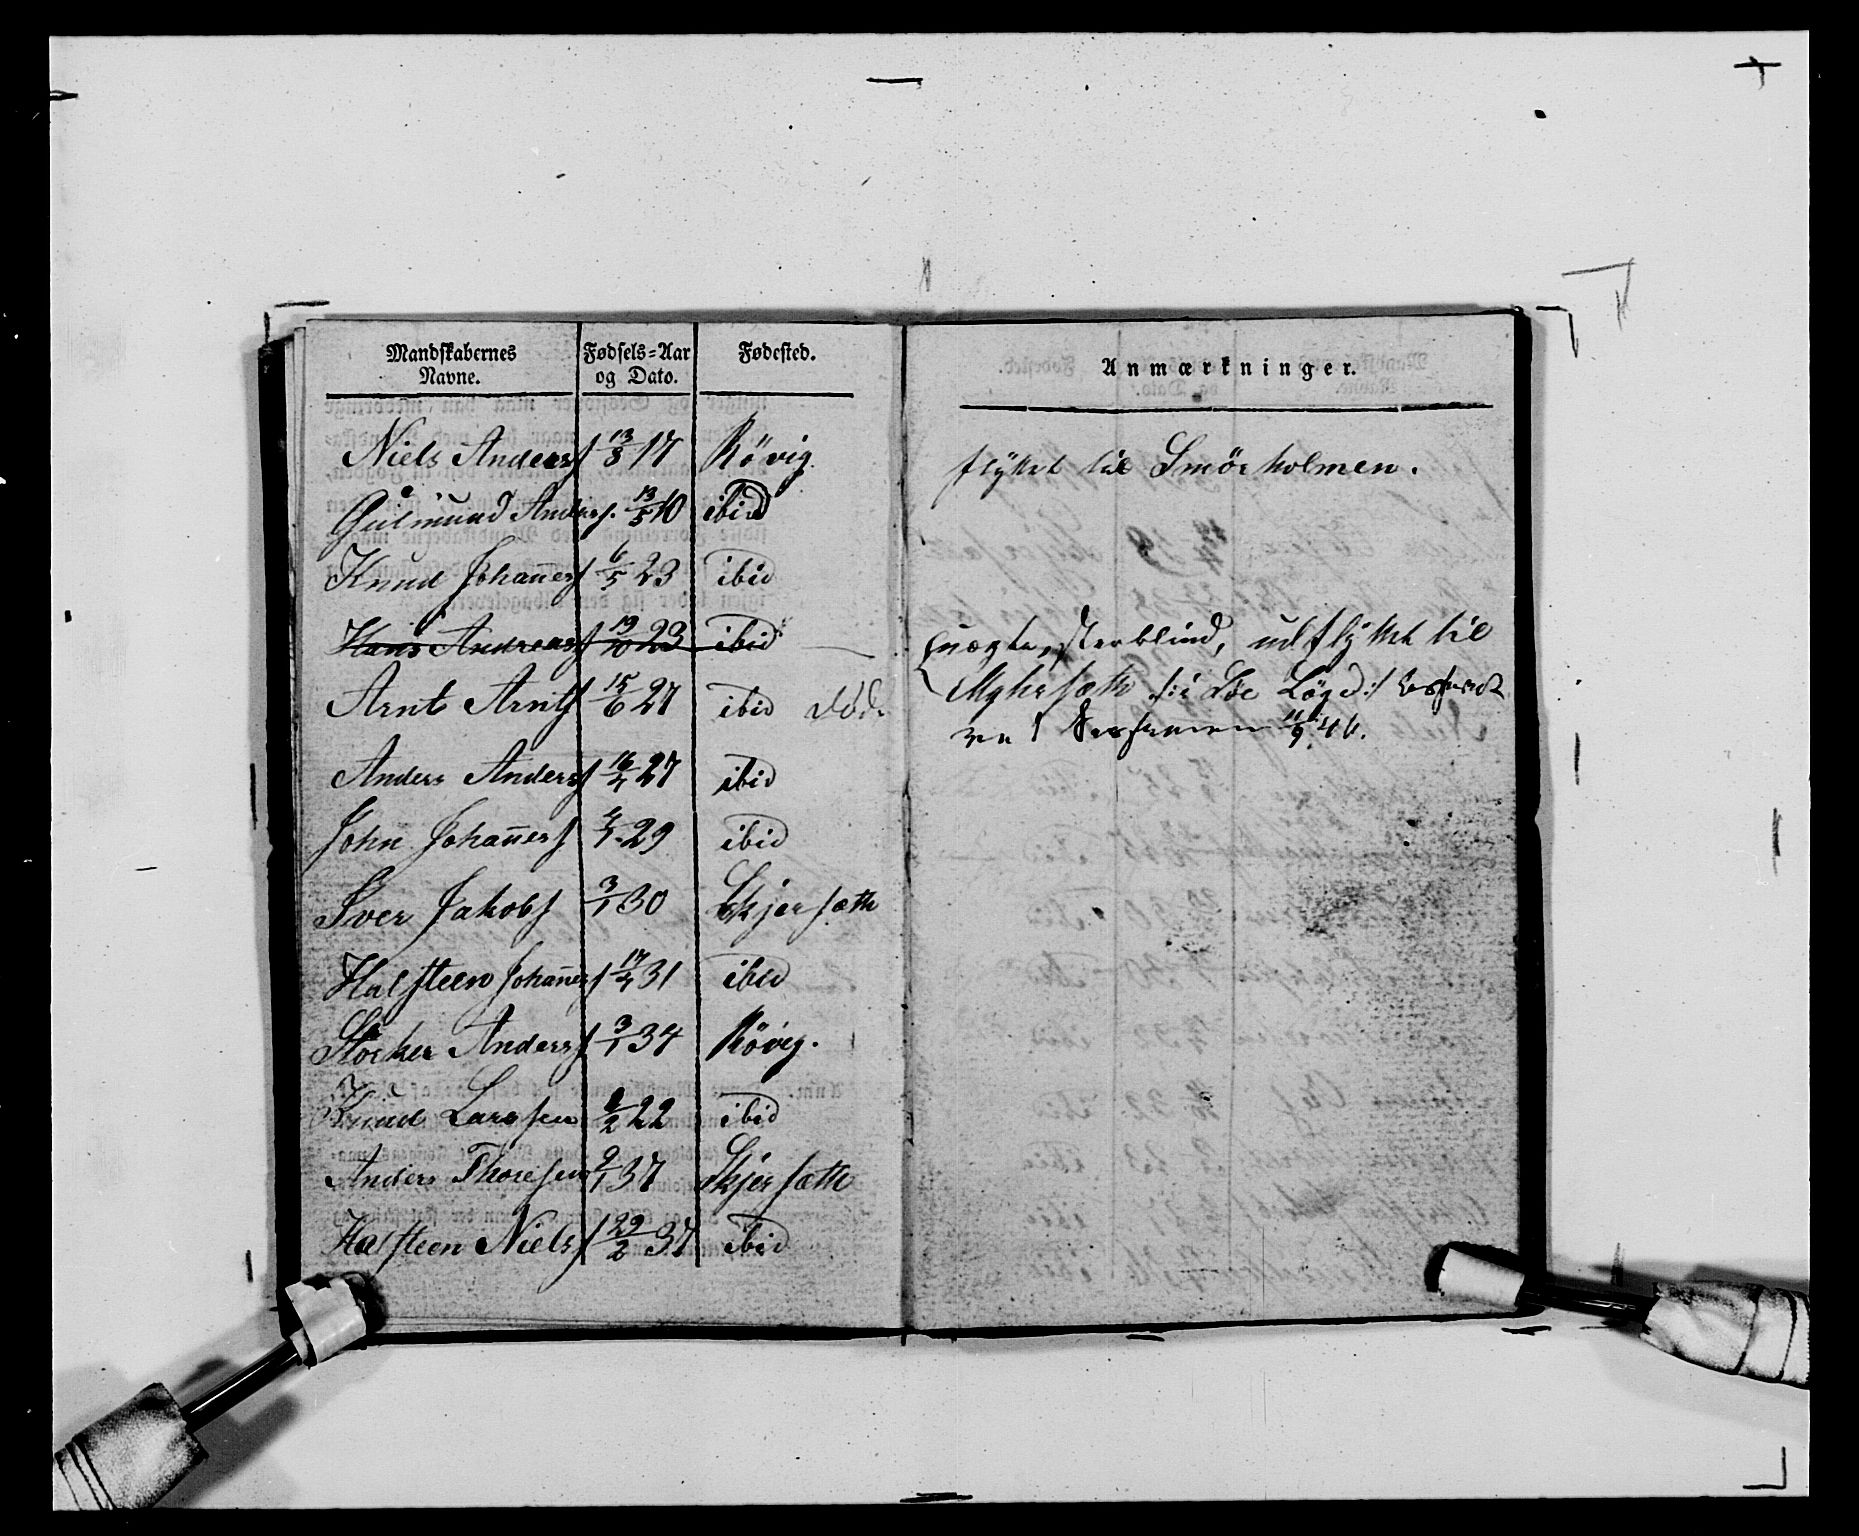 Mandskabernes Navne. Fødsels=Aar og Dato. Fødested.
Niels Anders 13/8 17 Rövig
Gulmund Anders. 13/5 10 ibid
Knud Johañes 6/5 23 ibid
Hans Andreas 19/10 23 ibid
Arnt Arnts 15/6 27 ibid død.
Anders Anders 16/7 27 ibid
John Johañes 4/7 29 ibid
Iver Jakobs 3/1 30 Skjersæth
Halsteen Johañes 17/4 31 ibid
Storker Anders 3/1 34 Rövig.
Knud Larssen 2 22 ibid
Anders Thoresen 9/1 37 Skjersæth
Halsteen Niels 22/2 37 ibid
Anmærkninger.
flyttet til Smörholmen.
uægte, stærblind, udflyttet til
Myhrsæth i Löe Lægd
ved Sessionen 11/9 46.